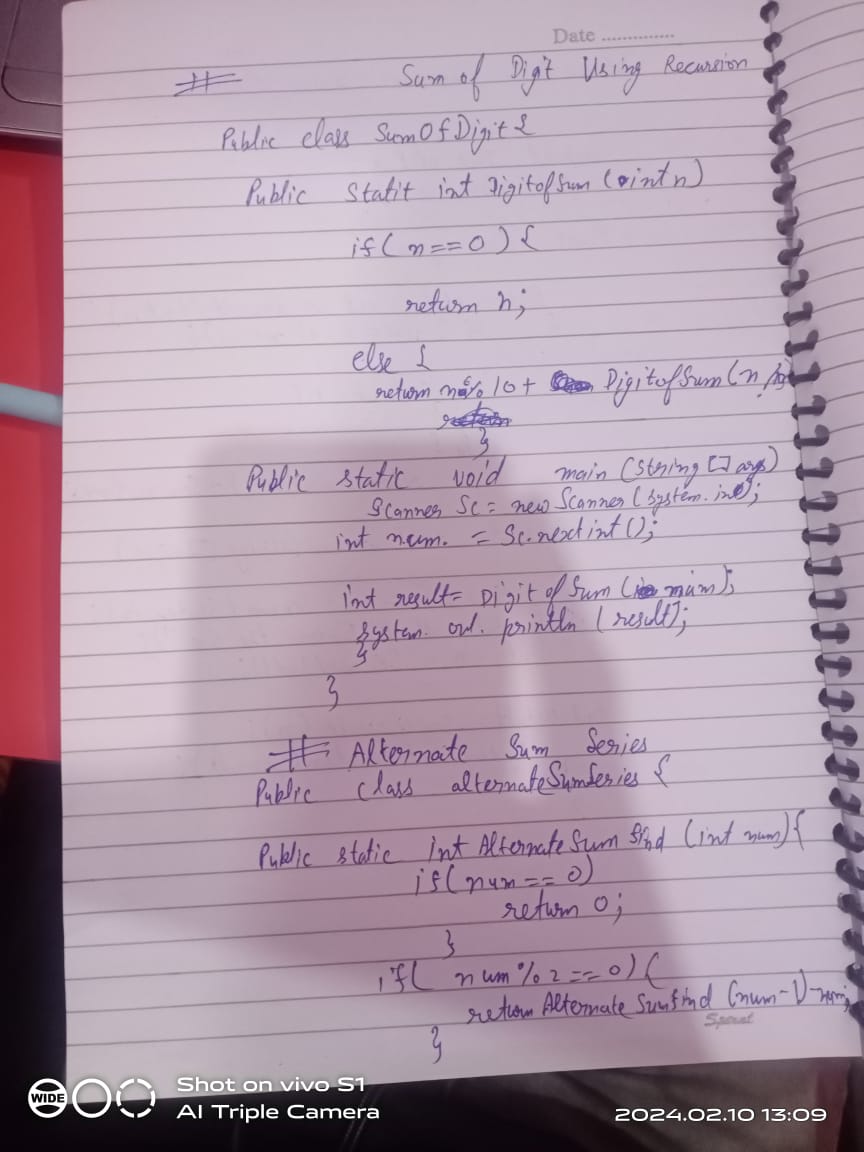 Date ..............
# Sum of Digit Using Recursion
Public class SumOfDigit {
Public Statit int DigitofSum (int n)
if ( n == 0 ) {
return n;
else {
return n % 10 + DigitofSum (n /10
}
Public static void main (String [] args)
Scanner Sc = new Scanner (System.in);
int num. = Sc.nextint ();
int result = Digit of Sum (num);
System. out. println (result);
}
}
# Alternate Sum Series
Public class alternateSumSeries {
Public static int AlternateSum find (int num) {
if( num == 0)
return 0;
}
if( num % 2 == 0) {
return Alternate Sumfind (num-1)-num;
}
WIDE
Shot on vivo S1
AI Triple Camera
2024.02.10 13:09